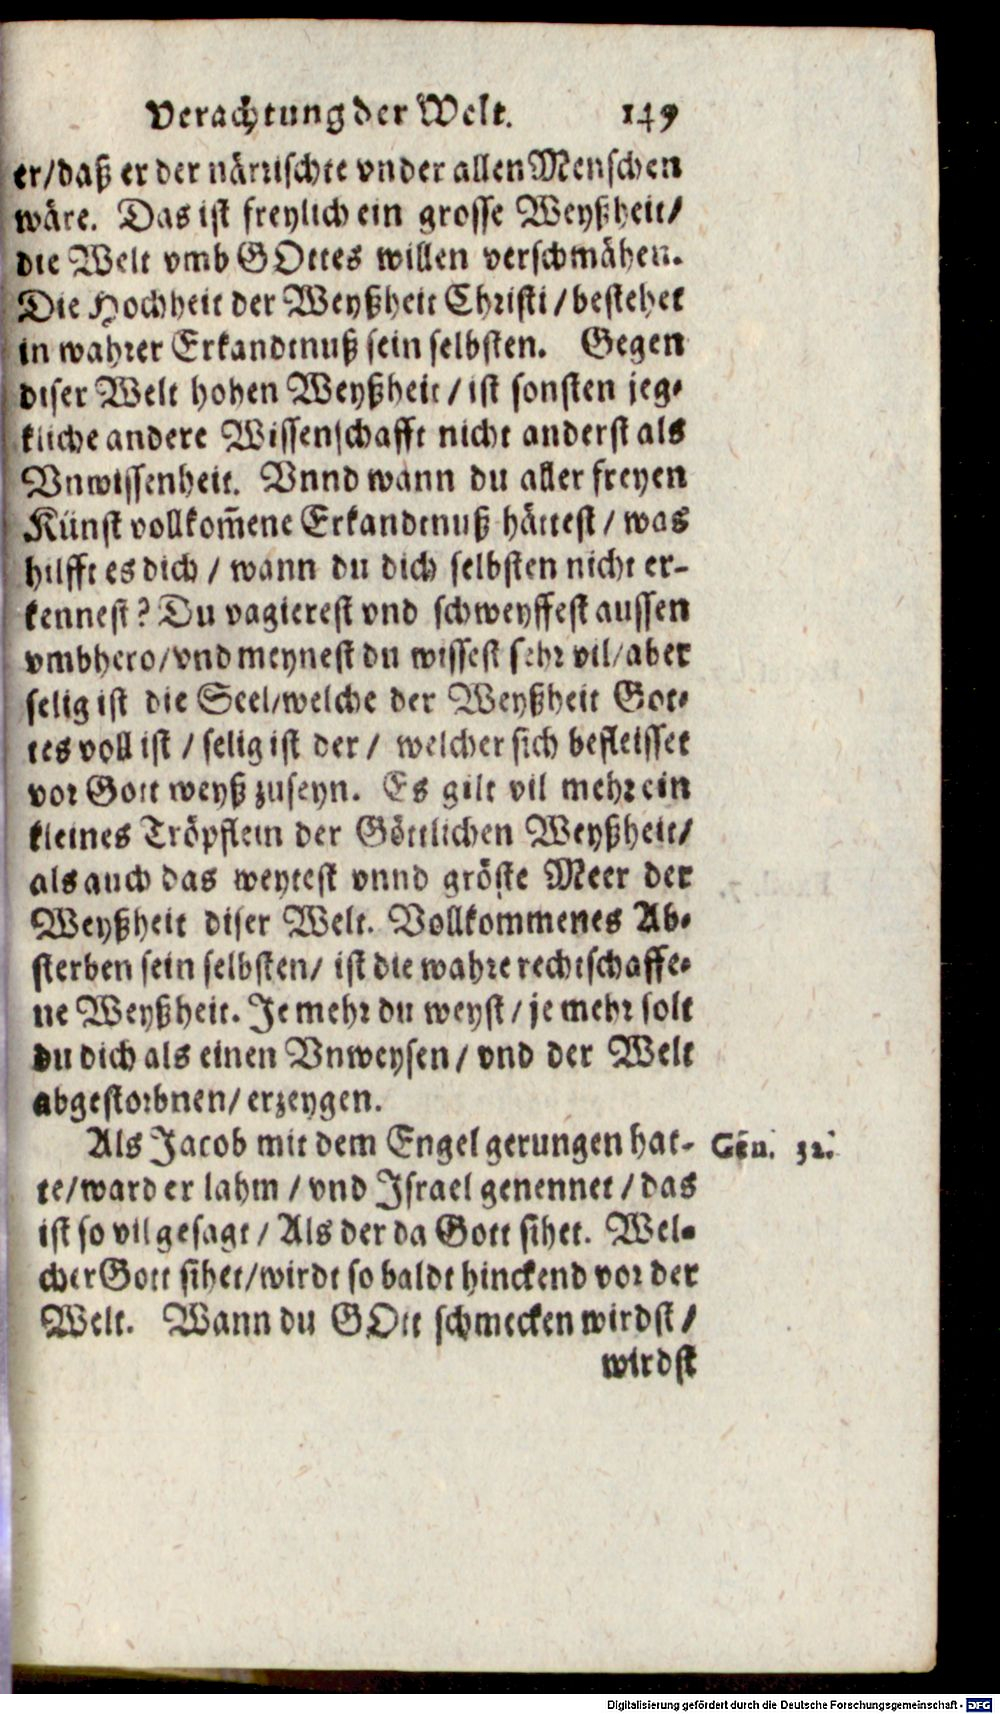 Verachtung der Welt. 149
er/daß er der närrischte vnder allen Menschen
wäre. Das ist freylich ein grosse Weyßheit/
die Welt vmb GOttes willen verschmähen.
Die Hochheit der Weyßheit Christi/bestehet
in wahrer Erkandtnuß sein selbsten. Gegen
diser Welt hohen Weyßheit/ist sonsten jeg-
kliche andere Wissenschafft nicht anderst als
Vnwissenheit. Vnnd wann du aller freyen
Künst vollkom̃ene Erkandtnuß hättest/was
hilfft es dich/wann du dich selbsten nicht er-
kennest? Du vagierest vnd schweyffest aussen
vmbhero/vnd meynest du wissest sehr vil/aber
selig ist die Seel/welche der Weyßheit Got-
tes voll ist/selig ist der/welcher sich befleisset
vor Gott weyß zuseyn. Es gilt vil mehr ein
kleines Tröpflein der Göttlichen Weyßheit/
als auch das weytest vnnd gröste Meer der
Weyßheit diser Welt. Vollkommenes Ab-
sterben sein selbsten/ist die wahre rechtschaffe-
ne Weyßheit. Je mehr du weyst/je mehr solt
du dich als einen Vnweysen/vnd der Welt
abgestorbnen/erzeygen.
Als Jacob mit dem Engel gerungen hat- Gen. 32.
te/ward er lahm/vnd Israel genennet/das
ist so vil gesagt/Als der da Gott sihet. Wel-
cher Gott sihet/wirdt so baldt hinckend vor der
Welt. Wann du GOtt schmecken wirdst/
wirdst
Digitalisierung gefördert durch die Deutsche Forschungsgemeinschaft - DFG